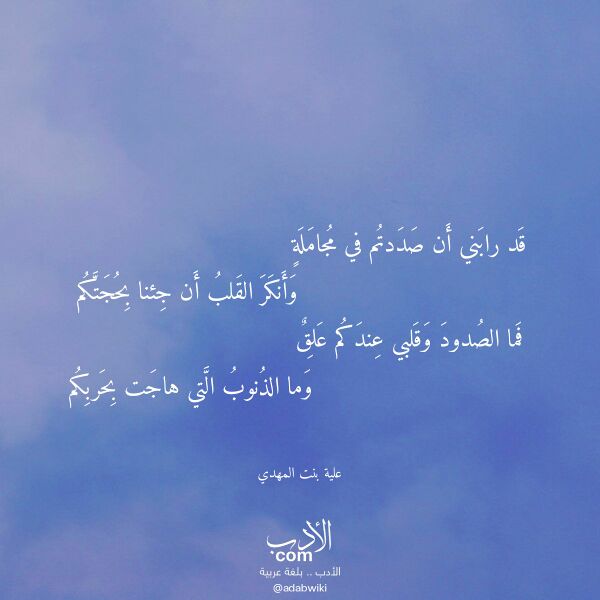 قَد رابَني أَن صَدَدتُم في مُجامَلَةٍ
وَأَنكَرَ القَلبُ أَن جِئنا بِحُجَتَّكُم
فَما الصُدودَ وَقَلبي عِندَكُم عَلِقٌ
وَما الذُنوبُ الَّتي هاجَت بِحَربِكُم
علية بنت المهدي
الأدب
com
الأدب .. بلغة عربية
@adabwiki